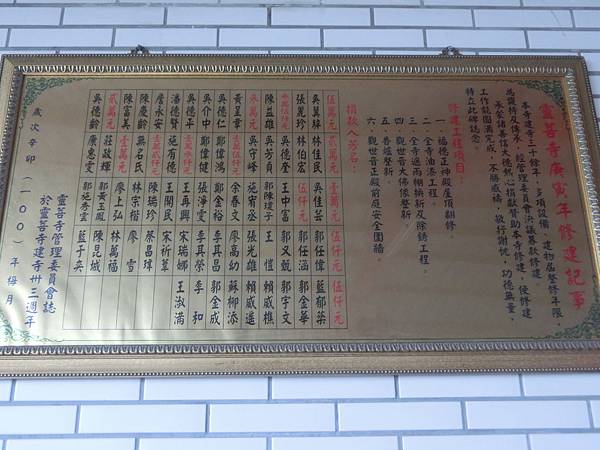 靈善寺庚寅年修建記事
本寺建寺三十餘年，多項設備、建物屆整修年限，
為護持及傳承，經管理委員會決議募款修建，
承蒙諸善信大德熱心捐獻贊助本寺修建，使修建
工作能圓滿完成，不勝感禱，敬行謝忱，功德無量，
特立此碑誌念。
修建工程項目：
一、福德正神殿屋頂翻修。
二、全寺油漆工程。
三、全寺遮雨棚換新及除銹工程。
四、觀世音大佛像整新
五、香爐整新。
六、觀世音正殿前庭安全圍牆。
捐款人芳名：
伍萬元 壹萬元 伍仟元 伍仟元
林佳民 吳佳芸 郭任偉 藍郁棻
張麗珍 林伯宏 伍仟元 郭任涵 郭金華
吳德全 王中富 郭又甄 郭宇文
陳益雄 吳芳貞 郭陳瓊子 王愷 賴威樵
叁萬元 吳守峰 施宥丞 張光雄 賴威遙
黃呈葦 余春文 廖高幼 蘇柳添
吳德仁 鄭偉鴻 鄭金裕 李其昌 郭金成
吳介中 鄭偉健 張淨雯 李具榮 李和
吳德年 王再興 宋瑞娣 王淑滿
潘德賢 施有德 王開民 宋祈葦
詹永安 陳瑞珍 蔡昌瑋
陳慶齡 無名氏 林宗楷 廖雪
陳富美 壹萬元 廖上弘 林萬福
貳萬元 莊啟輝 郭黃玉鳳 陳昆城
吳德齡 康惠雯 郭施香雲 藍于央
靈善寺管理委員會誌
於靈善寺建寺卅三週年
歲次辛卯（一００）年梅月